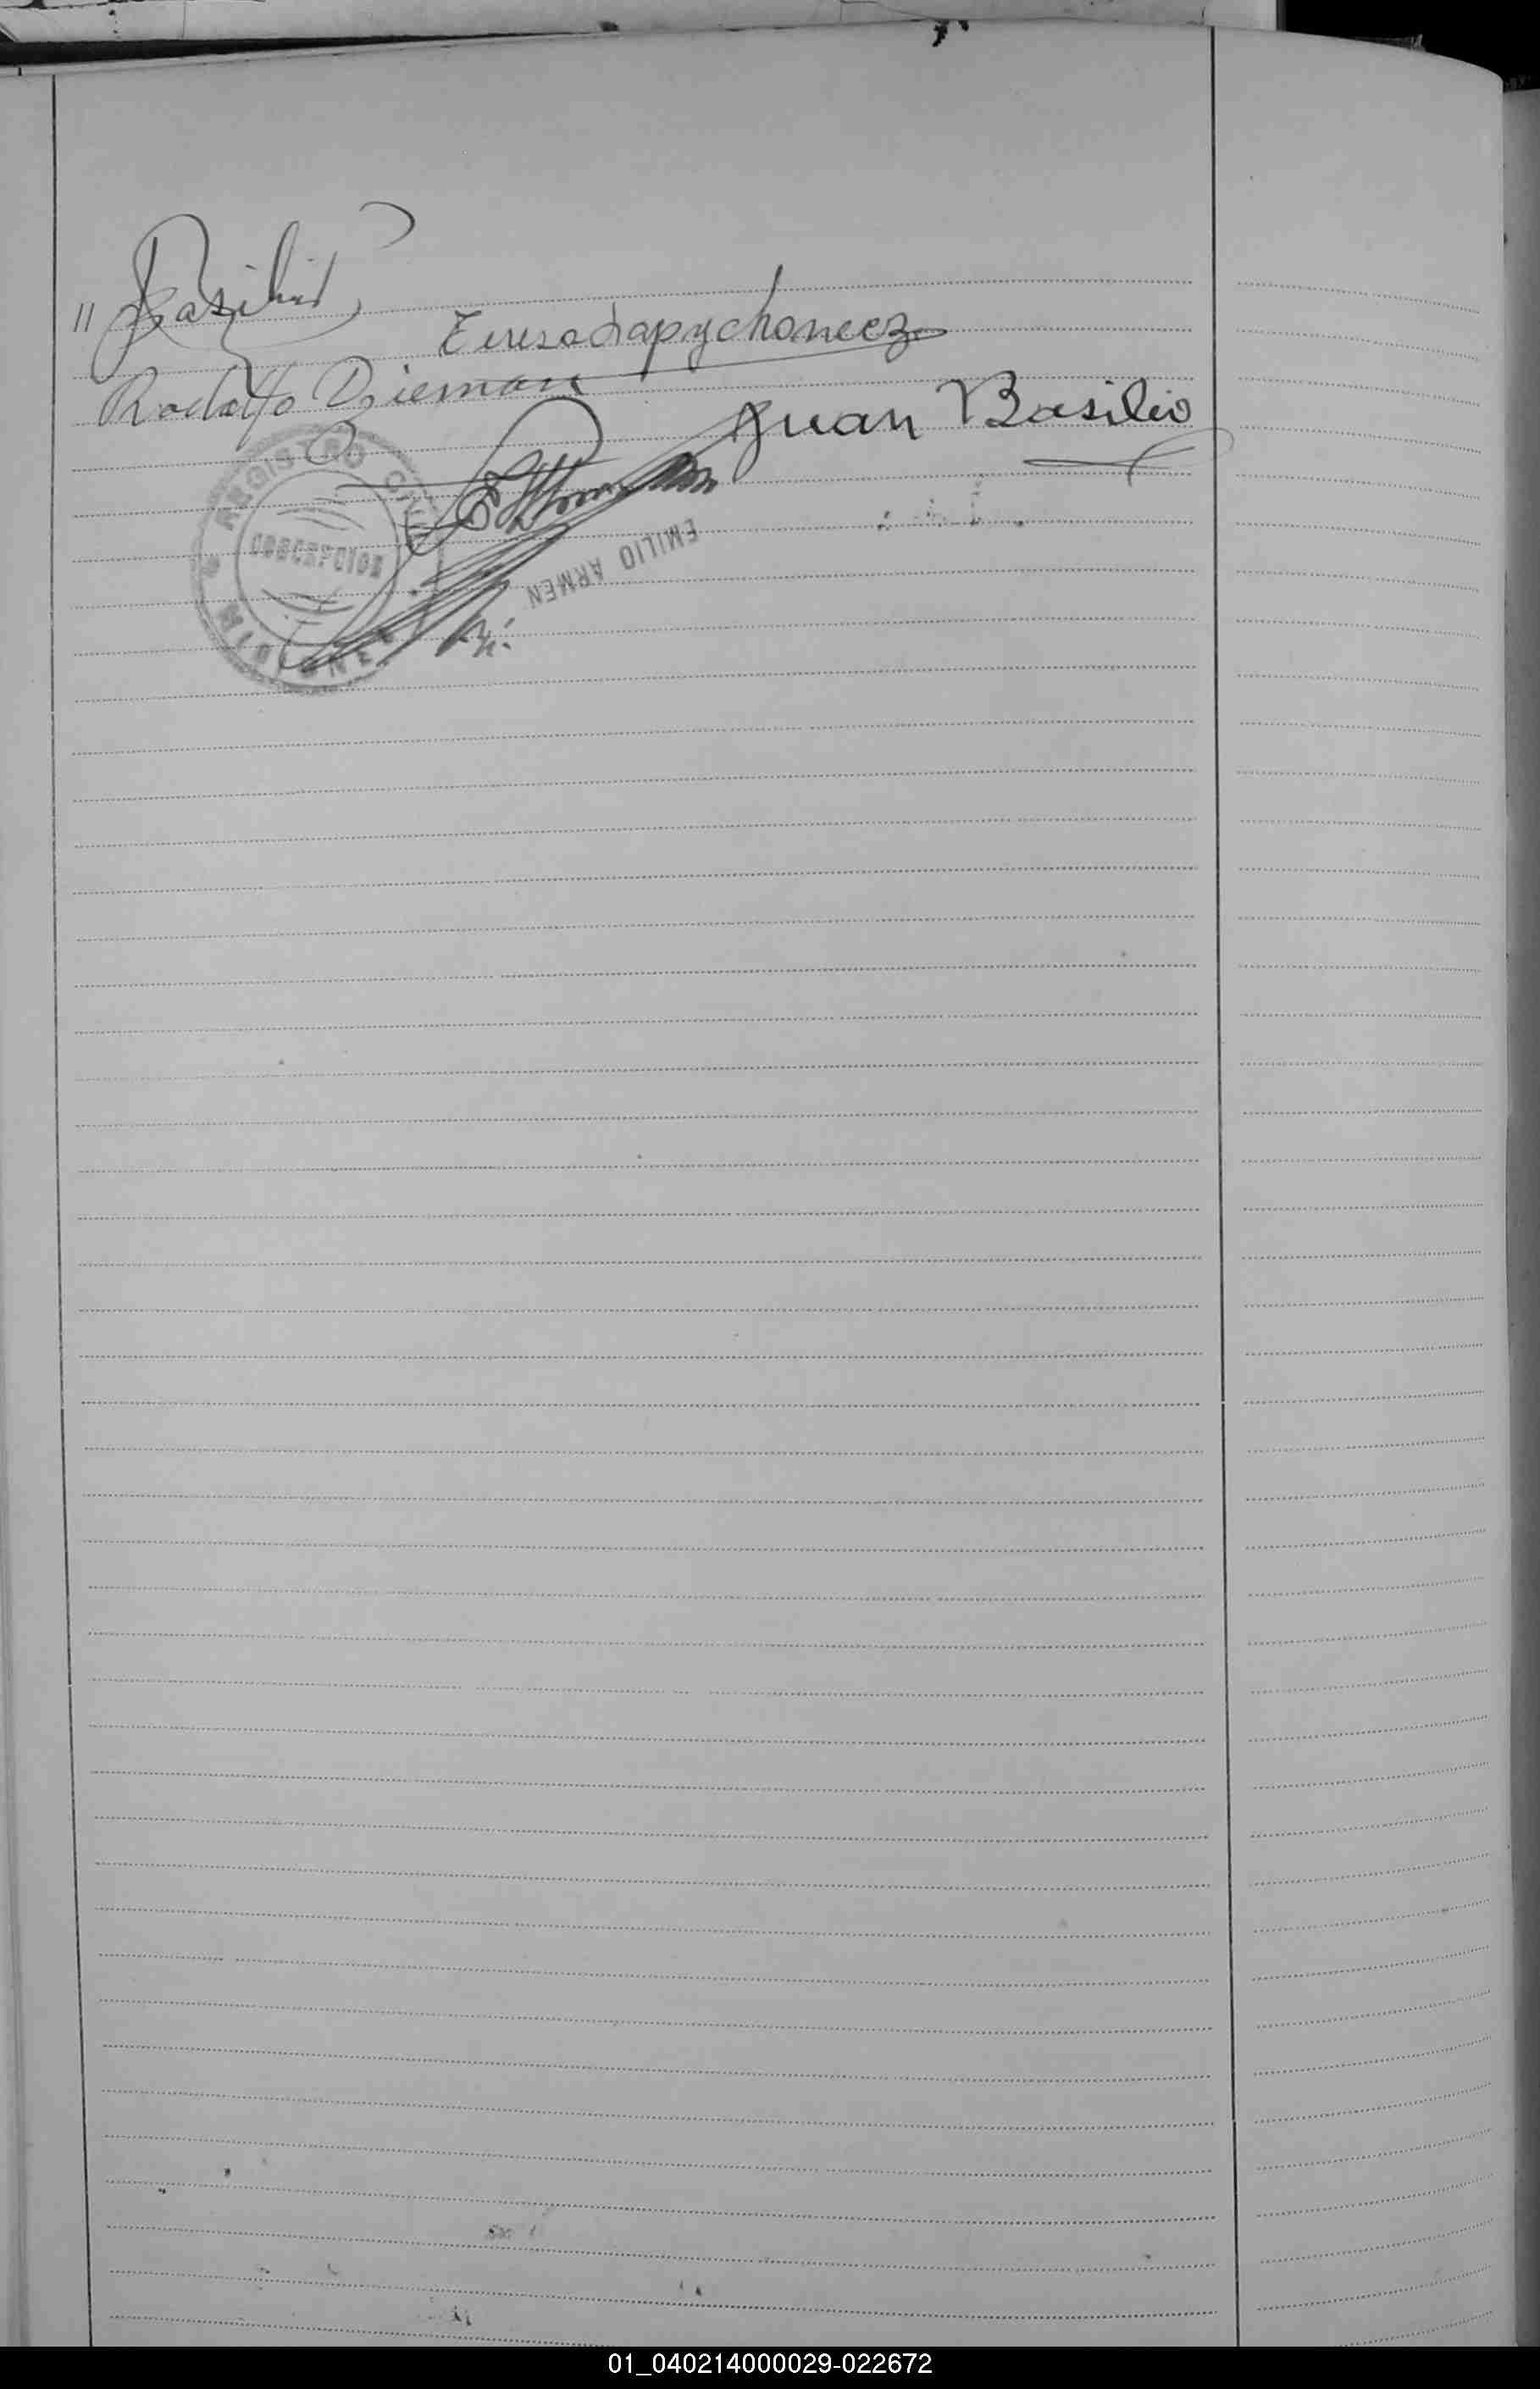 " Basilio
Teresa Lapczchoneez
Rodolfo Dzieman
Juan Basilio
REGISTRO CIVIL
CONCEPCION
MISIONES
EMILIO ARMEN
01_040214000029-022672